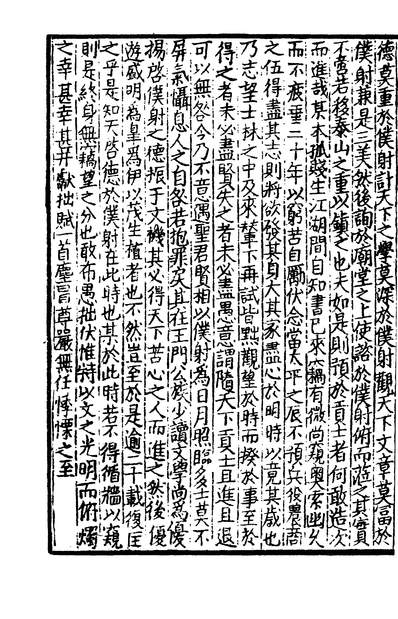 德莫重於僕射計天下之學莫深於僕射觀天下文章莫富於
僕射兼是三美然後詢於廟堂之上使諮於僕射俯而蒞之其實
不啻若移泰山之重以鎮之也夫如是則預於貢士者何敢造次
而進哉某本孤賤生江湖間自知書已來竊有微尚窺奧索幽久
而不疲垂二十年以窮苦自勵伏念當太平之辰不預兵役農商
之伍得盡其志則將欲發其身大其家盡心於明時以竟其歲也
乃志望士林之中及來輦下再試皆黜觀坐於時而揆於事至於
得之者未必盡賢失之者未必盡愚意謂隨天下貢士且進且退
可以無咎今乃不意遇聖君賢相以僕射為日月照臨多士莫不
屏氣懾息人人自咎若抱罪戾其在王門公戚少讀文學尚為優
揚啟僕射之德振于文機其必得天下苦心之人而進之然後優
遊盛明為皐為伊以茂生植者也不然豈至於是逾二十載復匡
之乎是知天啟德於僕射在此時也某於此時若不得循牆以窺
則是終身無竊望之分也敢布愚拙伏惟特以文之光明而俯燭
之幸甚幸甚并獻拙賦一首塵冒尊嚴無任悸慄之至